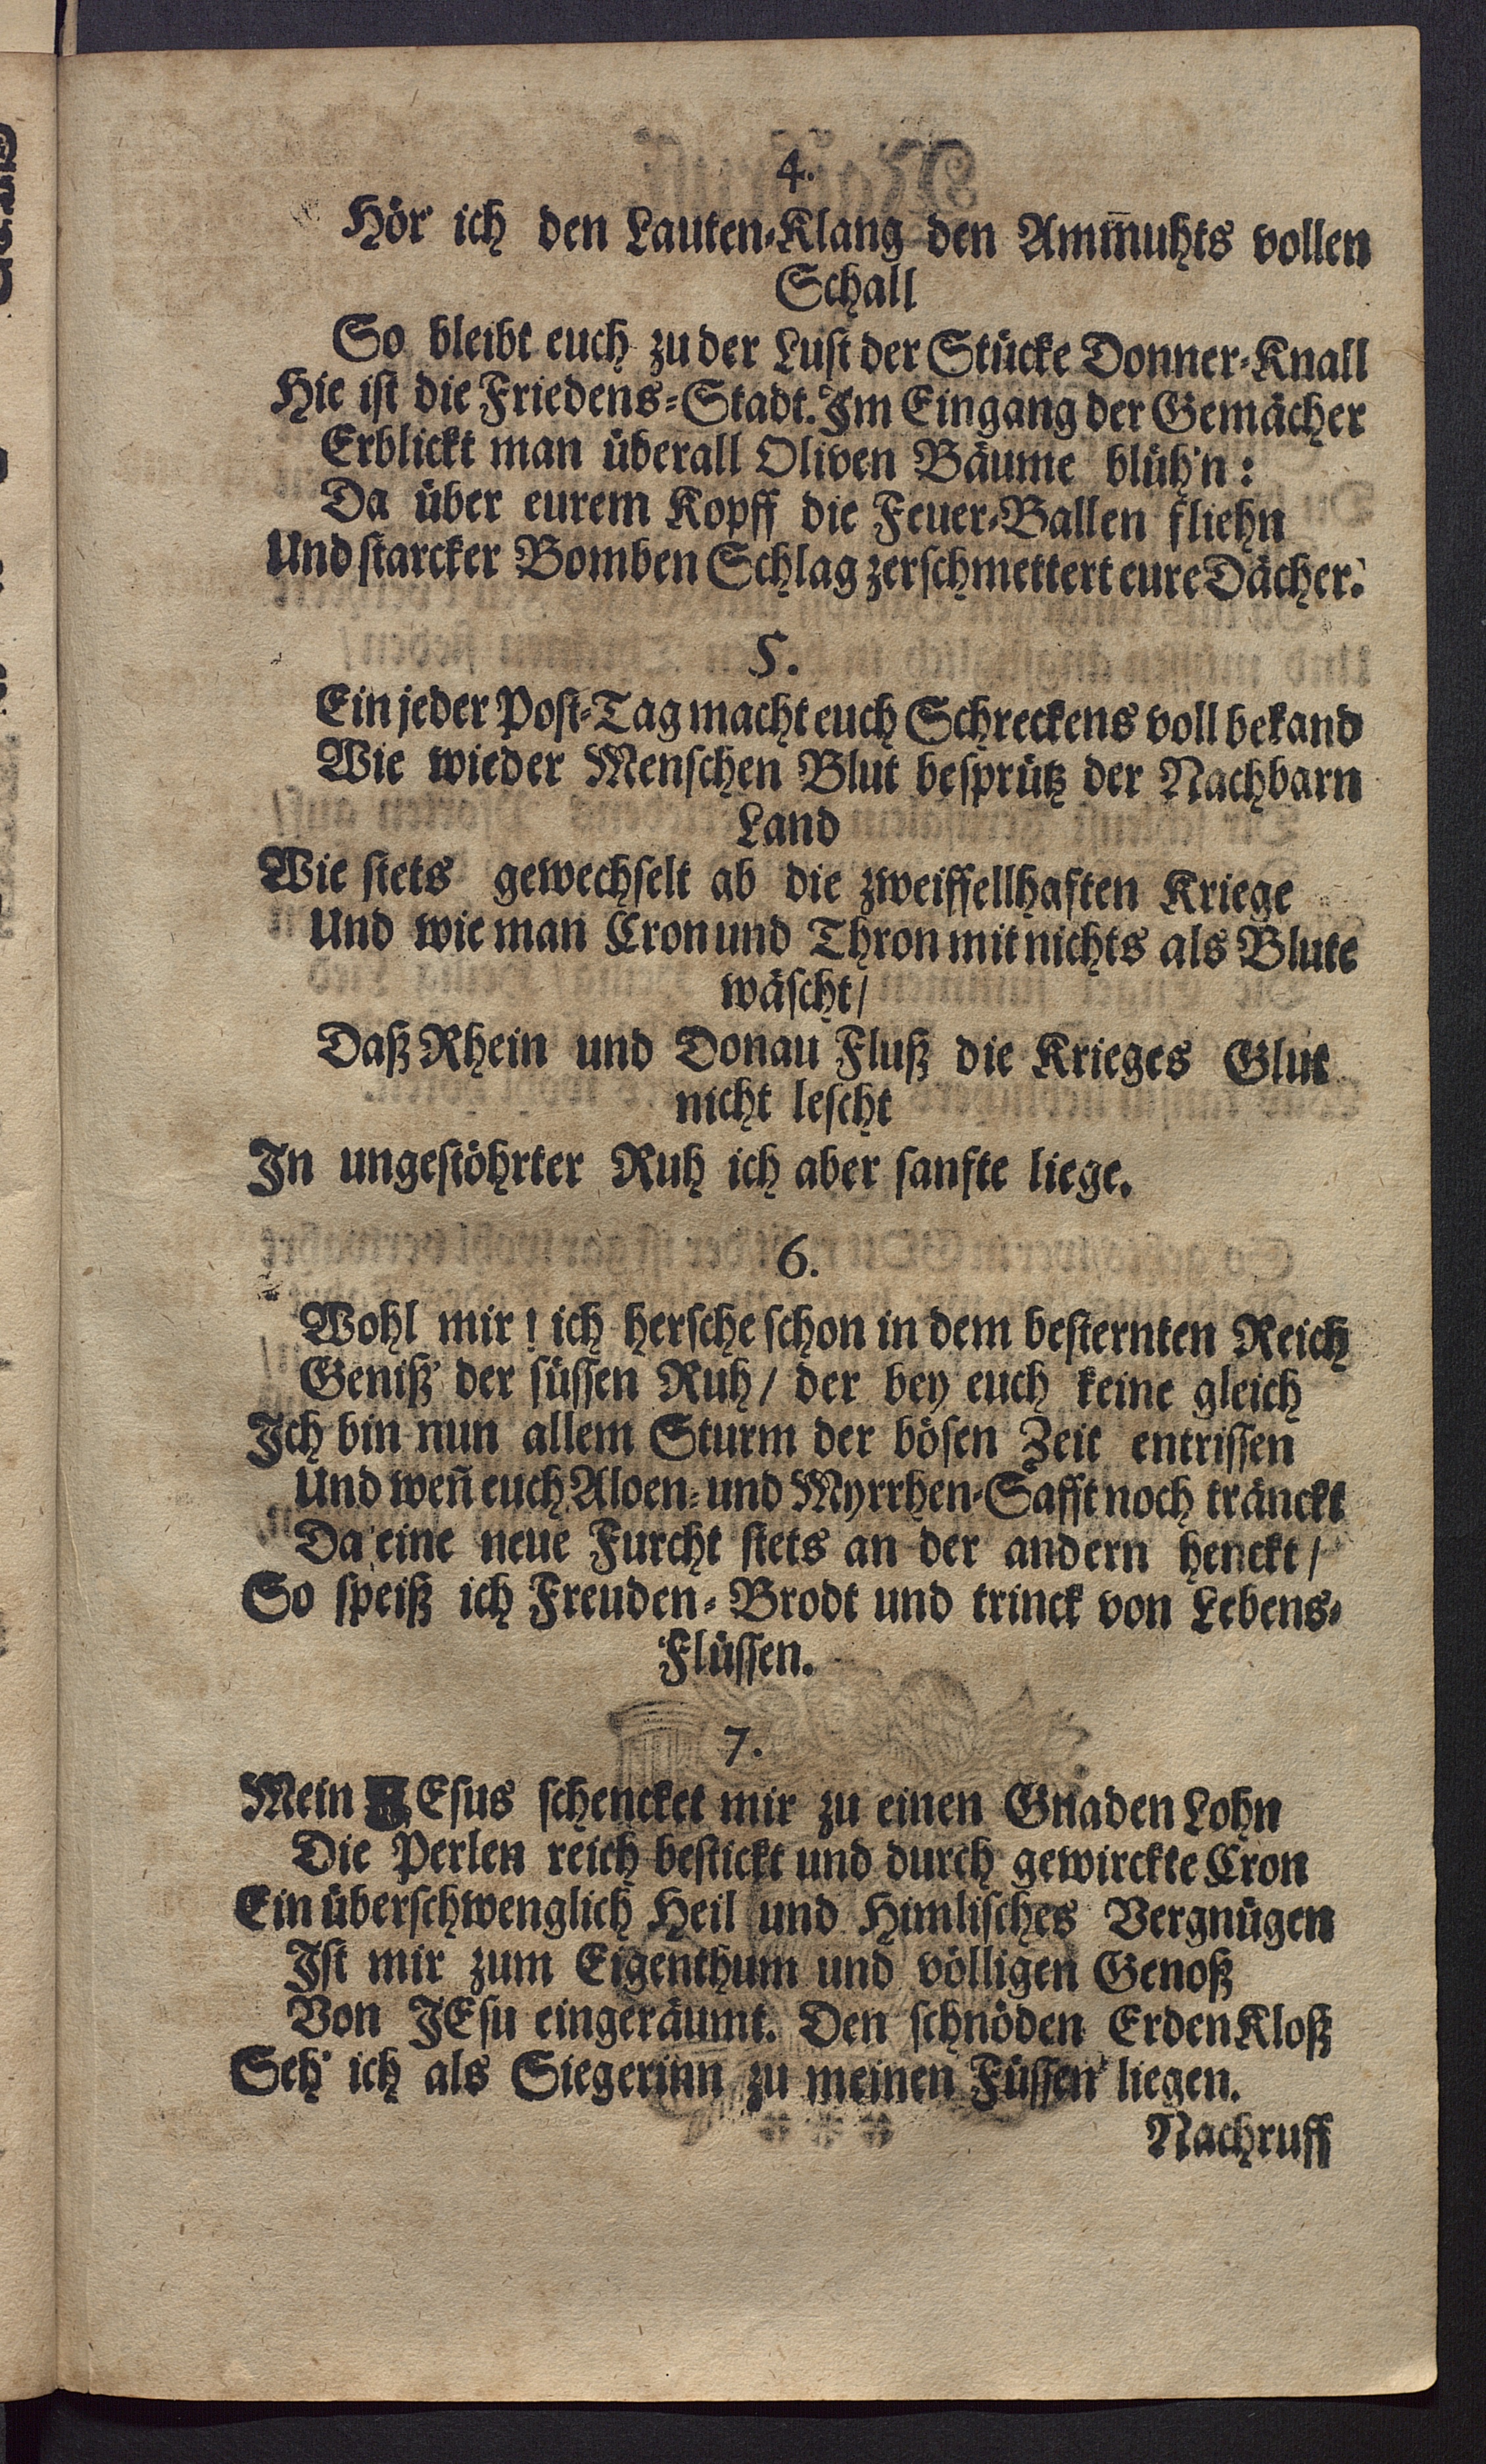 4.
Hör' ich den Lauten-Klang den Am̅muhts vollen
Schall
So bleibt euch zu der Lust der Stücke Donner-Knall
Hie ist die Friedens-Stadt. Im Eingang der Gemächer
Erblickt man überall Oliven Bäume blüh'n:
Da über eurem Kopff die Feuer-Ballen fliehn
Und starcker Bomben Schlag zerschmettert eure Dächer.
5.
Ein jeder Post-Tag macht euch Schreckens voll bekand
Wie wieder Menschen Blut besprütz der Nachbarn
Land
Wie stets gewechselt ab die zweiffellhaften Kriege
Und wie man Cron und Thron mit nichts als Blute
wäscht/
Daß Rhein und Donau Fluß die Krieges Glut
nicht lescht
In ungestöhrter Ruh ich aber sanfte liege.
6.
Wohl mir! ich hersche schon in dem besternten Reich
Geniß' der süssen Ruh/ der bey euch keine gleich
Ich bin nun allem Sturm der bösen Zeit entrissen
Und wen̄ euch Aloen- und Myrrhen-Safft noch tränckt
Da eine neue Furcht stets an der andern henckt/
So speiß ich Freuden-Brodt und trinck von Lebens-
Flüssen.
7.
Mein JEsus schencket mir zu einen Gnaden Lohn
Die Perlen reich bestickt und durch gewirckte Cron
Ein überschwenglich Heil und Himlisches Vergnügen
Ist mir zum Eigenthum und völligen Genoß
Von JEsu eingeräumt. Den schnöden Erden Kloß
Seh' ich als Siegerinn zu meinen Füssen liegen.
Nachruff